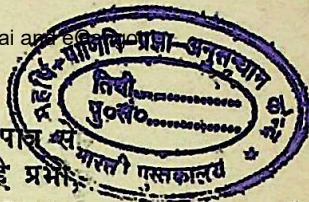 ai and eGangotri
महर्षि पाणिनि-प्रज्ञा-अनुसन्धान
तिथी................
पु०सं०................
भारती पुस्तकालय
से
हे प्रभो,